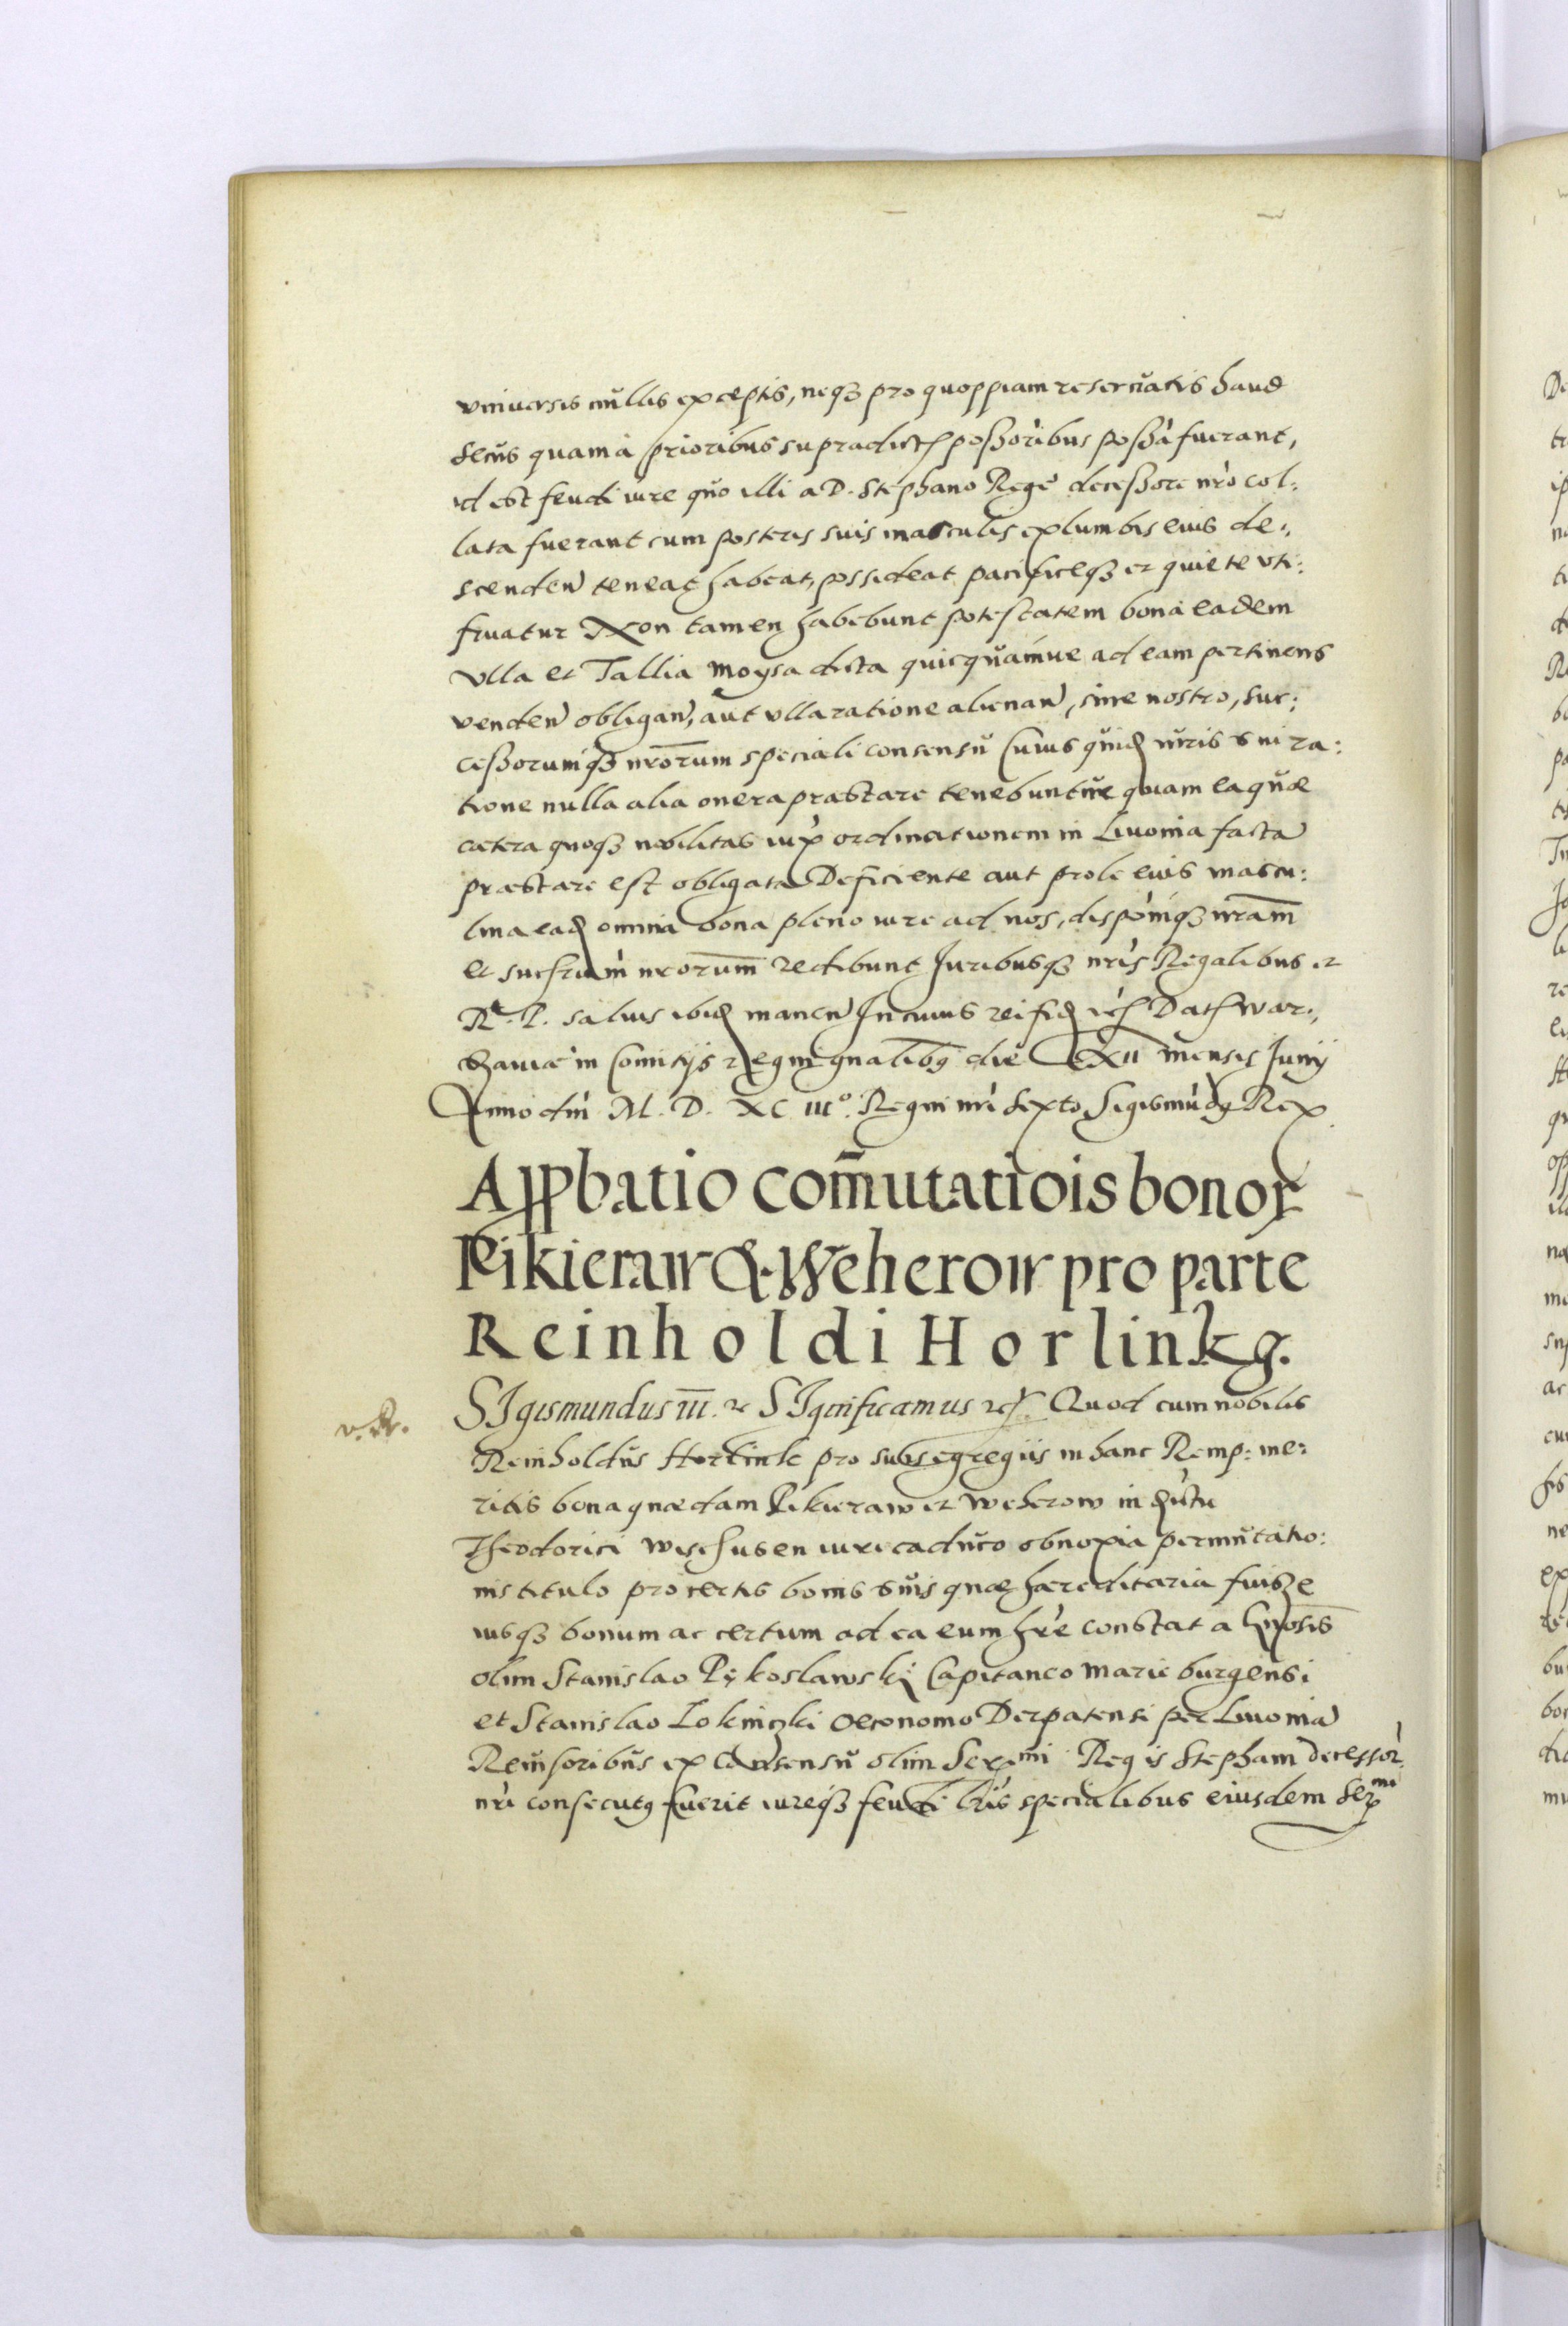 vniuersis nullis exceptis, neq3 pro quoppiam reseruatis haud
secus quam à prioribus supradictis possoribus possa fuerant,
id est feudi iure quo illi a D. Stephano Rege decessore nro col:
lata fuerant cum posteris suis masculis ex lumbis eius de:
scenden teneat habeat, possideat pacificeq3 et quiete vti:
fruatur Non tamen habebunt potestatem bona eadem
Vlla et Tallia Moysa dicta quicquamue ad eam pertinens
venden obligan, aut vlla ratione alienan, sine nostro, suc:
cessorumq3 nrorum speciali consensu Cuius quid iuris sui ra:
tione nulla alia onera praestare tenebuntur quam ea quae
caetera quoq3 nobilitas iux ordinationem in Liuonia facta
praestare est obligata Deficiente aut prole eius mascu:
lina ead omnia bona pleno iure ad nos, disponiq3 nram
et nrorum redibunt Juribusq3 nris Regalibus et
R. P. saluis ibid manen In cuius rei fid Dat War:,
shauiae in Comitijs regni gnalibus die XII mensis Junij
Anno dni M. D. XC IIIo. Regni nri sexto Sigismud9 Rex
Appbatio com̄utatiois bonor
Pikieraw & Weherow pro parte
Reinholdi Horlinkg.
v. R.
SIgismundus III. etc SIgnificamus etc. Quod cum nobilis
Reinholdus Horlink pro suis egregiis in hanc Remp: me:
ritis bona quaedam Pikieraw et Weherow in
Theodorici Wischusen iuri caduco obnoxia permutatio:
nis titulo pro certis bonis suis quae haereditaria fuisse
iusq3 bonum ac certum ad ea eum hre constat a Gnosis
olim Stanislao Pękoslawski Capitaneo Marieburgensi
et Stanislao Lokniczki Oeconomo Derpatensi per Liuonia
Reuisoribus ex Consensu olim Sermi Regis Stephani decessor
nri consecut9 fuerit iureq3 feudi lris specialibus eiusdem Sermi